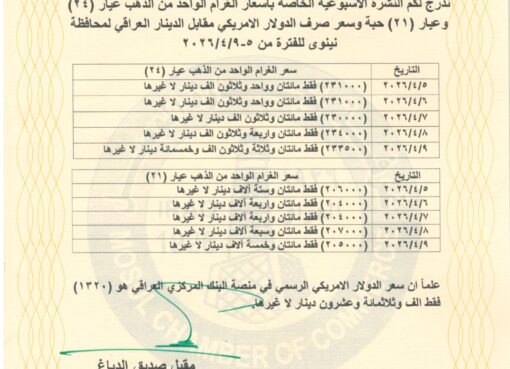 ندرج لكم النشرة الاسبوعية الخاصة باسعار الغرام الواحد من الذهب عيار (٢٤)
وعيار (٢١) حبة وسعر صرف الدولار الامريكي مقابل الدينار العراقي لمحافظة
نينوى للفترة من ٥-٢٠٢٦/٤/٩
التاريخ سعر الغرام الواحد من الذهب عيار (٢٤)
٢٠٢٦/٤/٥ (٢٣١٠٠٠) فقط مائتان وواحد وثلاثون الف دينار لا غيرها
٢٠٢٦/٤/٦ (٢٣١٠٠٠) فقط مائتان وواحد وثلاثون الف دينار لا غيرها
٢٠٢٦/٤/٧ (٢٣٠٠٠٠) فقط مائتان وثلاثون الف دينار لا غيرها
٢٠٢٦/٤/٨ (٢٣٤٠٠٠) فقط مائتان واربعة وثلاثون الف دينار لا غيرها
٢٠٢٦/٤/٩ (٢٣٣٥٠٠) فقط مائتان وثلاثة وثلاثون الف وخمسمائة دينار لا غيرها
التاريخ سعر الغرام الواحد من الذهب عيار (٢١)
٢٠٢٦/٤/٥ (٢٠٦٠٠٠) فقط مائتان وستة آلاف دينار لا غيرها
٢٠٢٦/٤/٦ (٢٠٤٠٠٠) فقط مائتان واربعة آلاف دينار لا غيرها
٢٠٢٦/٤/٧ (٢٠٤٠٠٠) فقط مائتان واربعة آلاف دينار لا غيرها
٢٠٢٦/٤/٨ (٢٠٧٠٠٠) فقط مائتان وسبعة آلاف دينار لا غيرها
٢٠٢٦/٤/٩ (٢٠٥٠٠٠) فقط مائتان وخمسة آلاف دينار لا غيرها
علماً ان سعر الدولار الامريكي الرسمي في منصة البنك المركزي العراقي هو (١٣٢٠)
فقط الف وثلاثمائة وعشرون دينار لا غيرها.
CHAMBER OF COM
مقبل صديق الدباغ